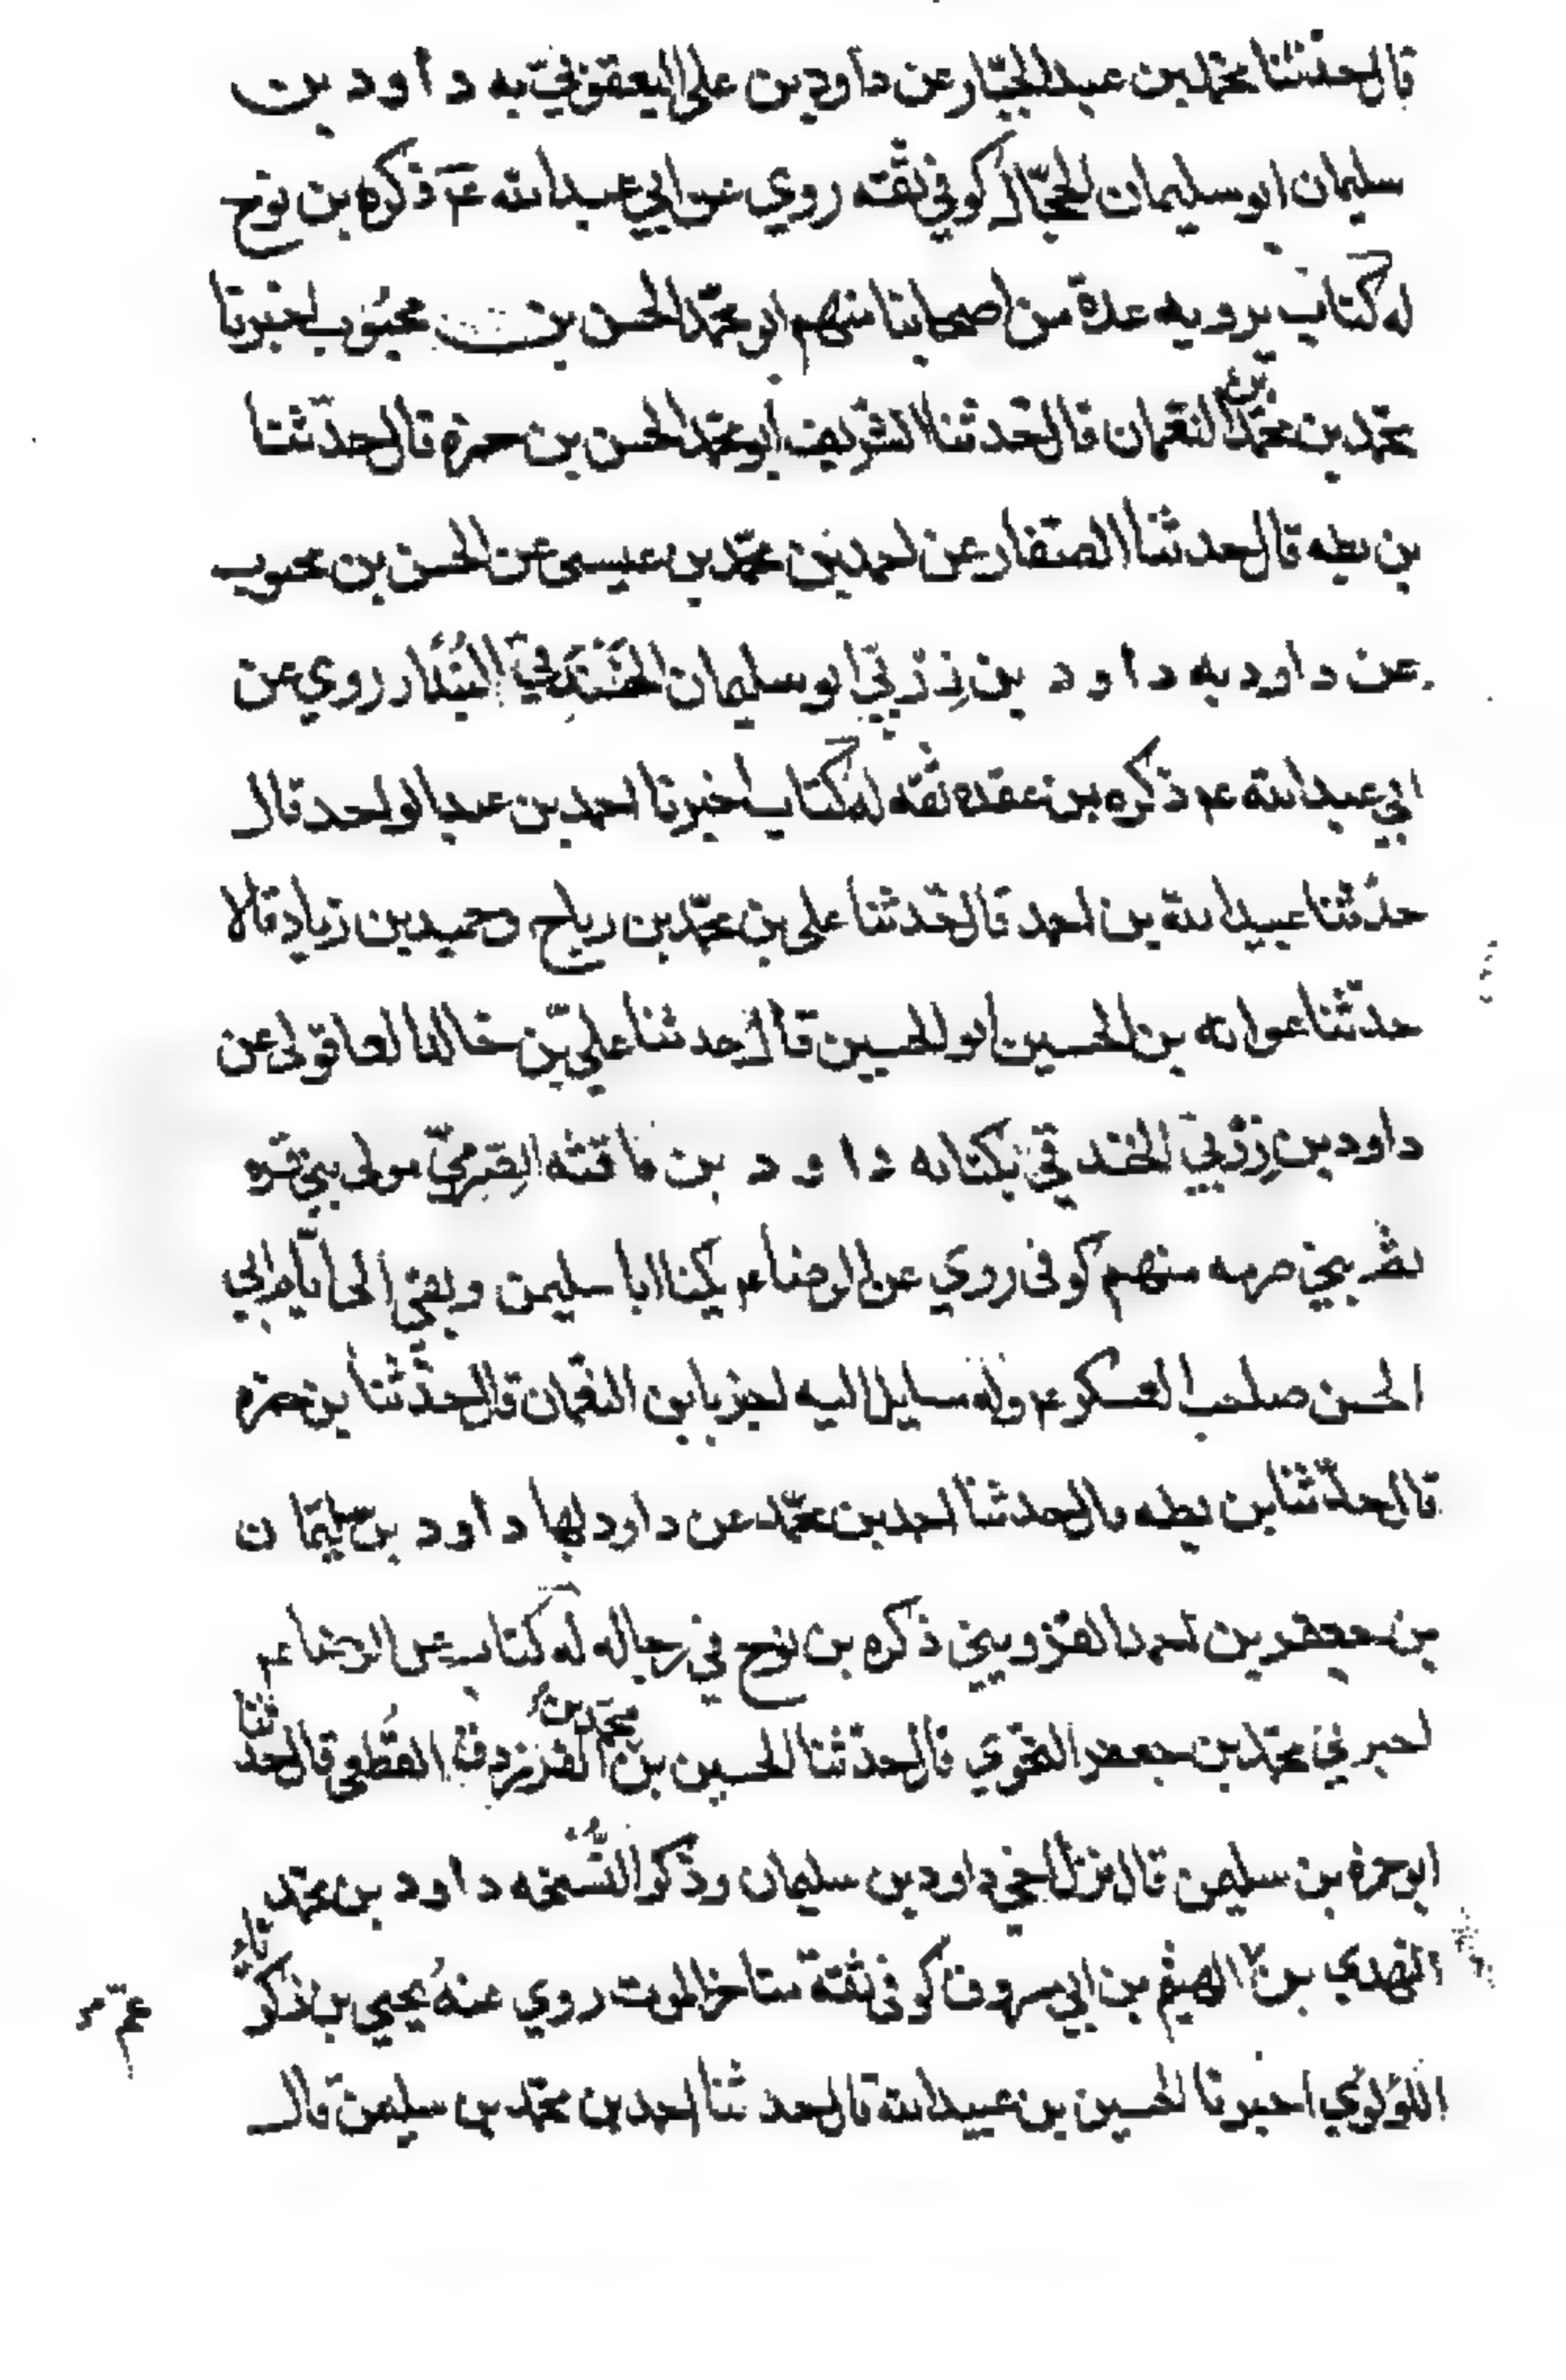 قال حدثنا محمد بن عبد الجبّار عن داود بن على اليعقوبيّ به داود بن
سليمان ابو سليمان الحمّار كوفي ثقه روي عن ابي عبد الله عم ذكره بن نوح
له كتاب يرويه عدة من اصحابنا منهم ابو محمّد الحسن بن محبوب اخبرنا
محمد بن محمّد بن النعمان قال حدثنا الشريف ابو محمد الحسن بن حمزه قال حدّثنا
بن بطه قال حدثنا الصفّار عن احمد بن محمّد بن عيسى عن الحسن بن محبوب
عن داود به داود بن زِرْبيّ ابو سليمان الخَنْدَقيّ البُنْدار روي عن
ابي عبد الله عم ذكره بن عقده ثقه له كتاب اخبرنا احمد بن عبد الواحد قال
حدّثنا عبيد الله بن احمد قال حدّثنا على بن محمّد بن رباح وحميد بن زياد قالا
حدّثنا عوانه بن الحسين ابو الحسين قال حدثنا عليّ بن خالد العاقولى عن
داود بن زِرْبيّ الخندقيّ بكتابه داود بن مافنّه الصِرْميّ مولى بني قره
ثمّ بني صرمه منهم كوفى روي عن الرضا عم يكنا ابا سليمن وبقي الى ايّام ابي
الحسن صاحب العسكر عم وله مسايل اليه اخبرنا بن النعمان قال حدّثنا بن حمزه
قال حدّثنا بن بطه قال حدثنا احمد بن محمّد عن داود بها داود بن سليمان
بن جعفر بن احمد القزويني ذكره بن نوح في رجاله له كتاب عن الرضا عم
اخبرني محمّد بن جعفر النحوي قال حدّثنا الحسين بن محمّد بن الفرزدق القُطعى قال حدّثنا
ابو حمزه بن سليمن قال نزل اخي داود بن سليمان وذكر النّسخه داود بن محمّد
النهدي بن الهيثم بن ابي مسروق كوفى ثقة متاخر الموت روي عنه يحيي بن زكريا
اللؤلؤي اخبرنا الحسين بن عبيد الله قال حدثنا احمد بن محمّد بن سليمن قال